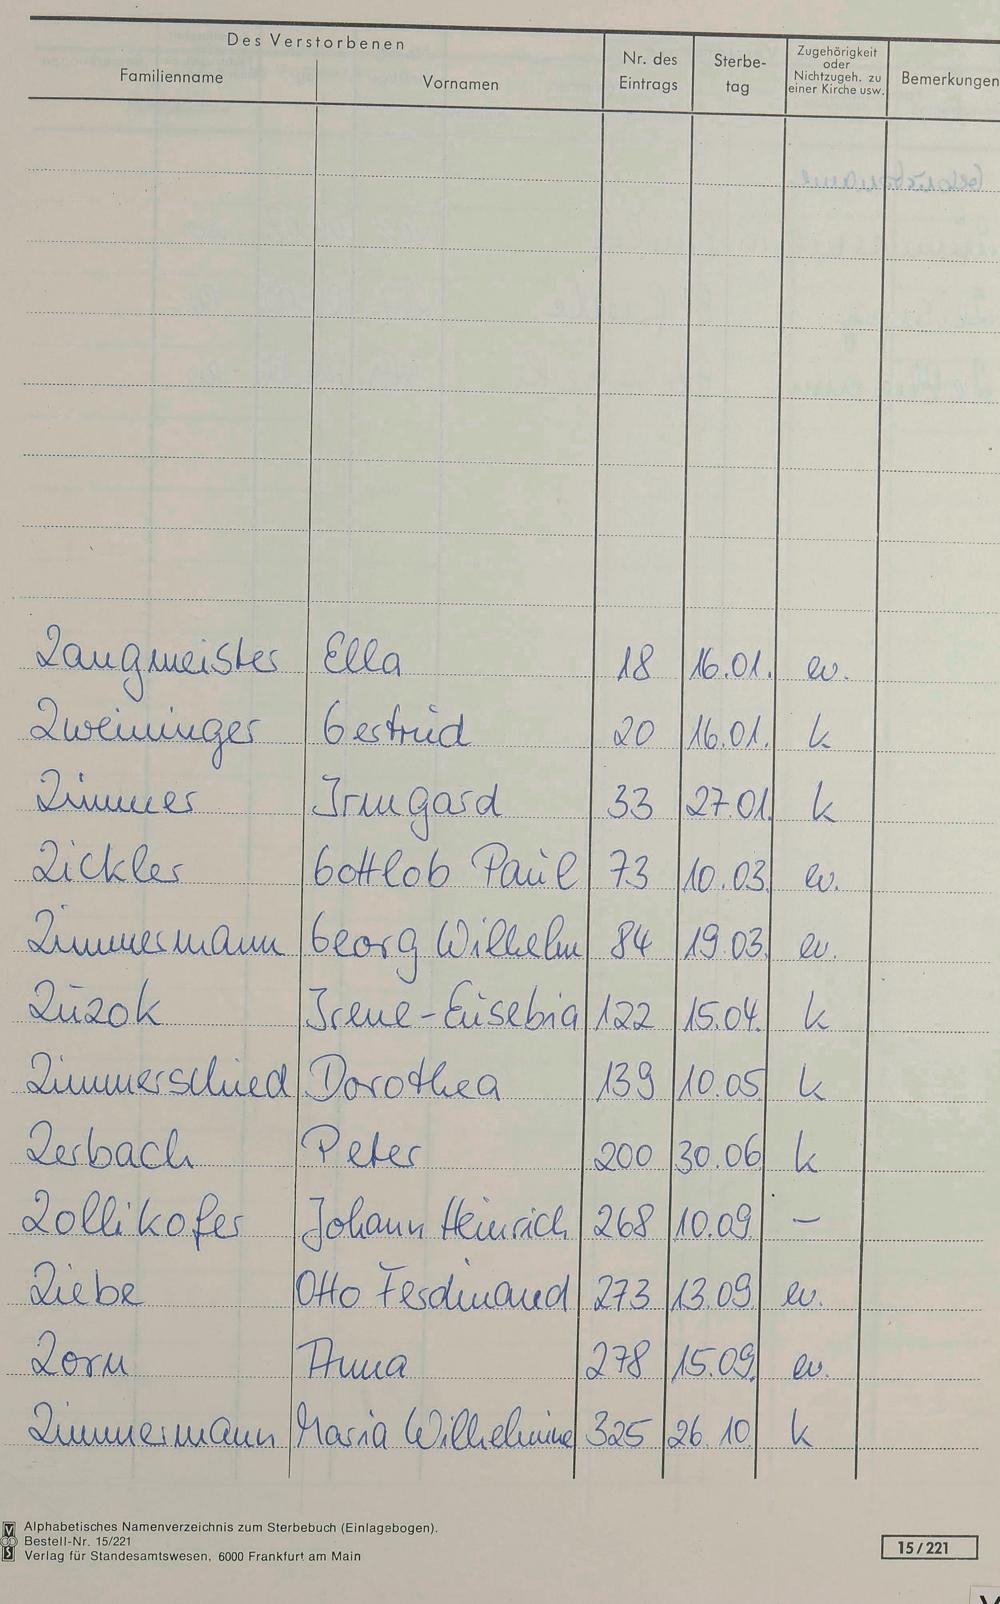 Des Verstorbenen
Familienname Vornamen Nr. des Eintrags Sterbe-tag Zugehörigkeit oder Nichtzugeh. zu einer Kirche usw. Bemerkungen
Zangmeister Ella 18 16.01. ev.
Zweininger Gertrud 20 16.01. k
Zimmer Irmgard 33 27.01. k
Zickler Gottlob Paul 73 10.03. ev.
Zimmermann Georg Wilhelm 84 19.03. ev.
Zuzok Irene-Eusebia 122 15.04. k
Zimmerschied Dorothea 139 10.05. k
Zerbach Peter 200 30.06. k
Zollikofer Johann Heinrich 268 10.09. –
Ziebe Otto Ferdinand 273 13.09. ev.
Zorn Anna 278 15.09. ev.
Zimmermann Maria Wilhelmine 325 26.10. k
Alphabetisches Namenverzeichnis zum Sterbebuch (Einlagebogen).
Bestell-Nr. 15/221
Verlag für Standesamtswesen, 6000 Frankfurt am Main
15/221